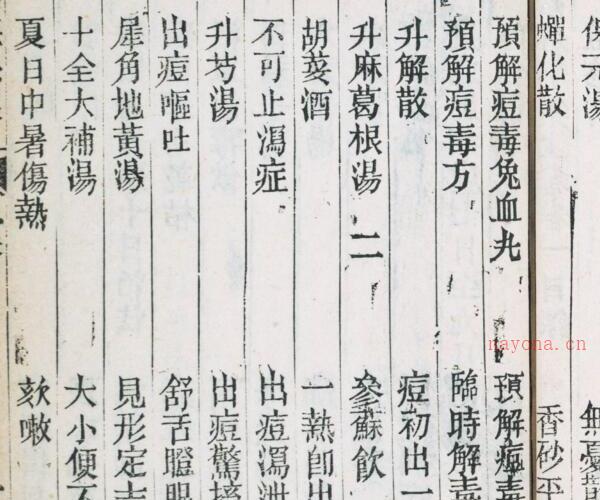 保元湯
無憂
蟬化散
香砂平
預解痘毒兔血丸
預解痘毒
預解痘毒方
臨時解毒
升解散
痘初出一
升麻葛根湯 二
參蘇飲
胡荽酒
一熱卽出
不可止瀉症
出痘瀉泄
升芍湯
出痘驚搐
出痘嘔吐
舒舌瞪眼
犀角地黃湯
見形定
十全大補湯
大小便不
夏日中暑傷熱
欬嗽
nayona.cn